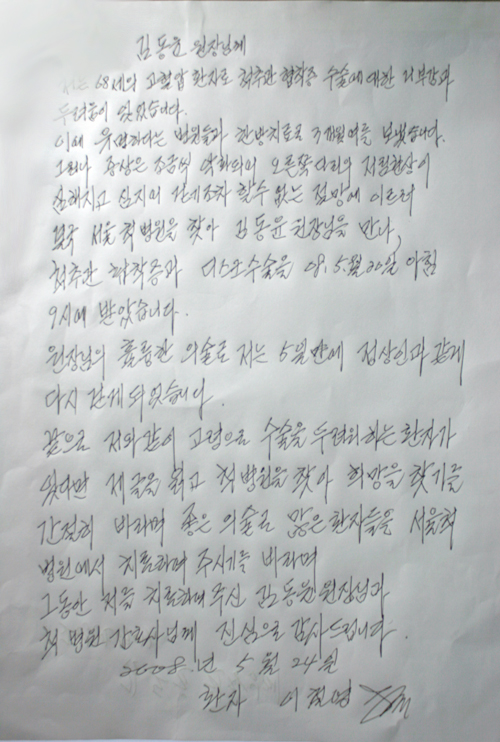 김동윤 원장님께
저는 68세의 고혈압 환자로 척추관 협착증 수술에 대한 거부감과
두려움이 있었습니다.
이에 유명하다는 병원들과 한방치료로 3개월여를 보냈습니다.
그러나 증상은 조금씩 악화되어 오른쪽 다리의 저림현상이
심해지고 심지어 걷기조차 할수 없는 절망에 이르러
결국 서울척병원을 찾아 김동윤원장님을 만나,
척추관 협착증과 디스크수술을 08.5.월20일 아침
9시에 받았습니다.
원장님의 훌륭한 의술로 저는 5일만에 정상인과 같게
다시 걷게 되었습니다.
끝으로 저와같이 고령으로 수술을 두려워하는 환자가
있다면 제글을 읽고 척병원을 찾아 희망을 찾기를
간절히 바라며 좋은 의술로 많은 환자들을 서울척
병원에서 치료하여 주시기를 바라며
그동안 저를 치료하여 주신 김동윤원장님과
척병원 간호사님께 진심으로 감사드립니다.
2008.년 5월 24일
환자 이